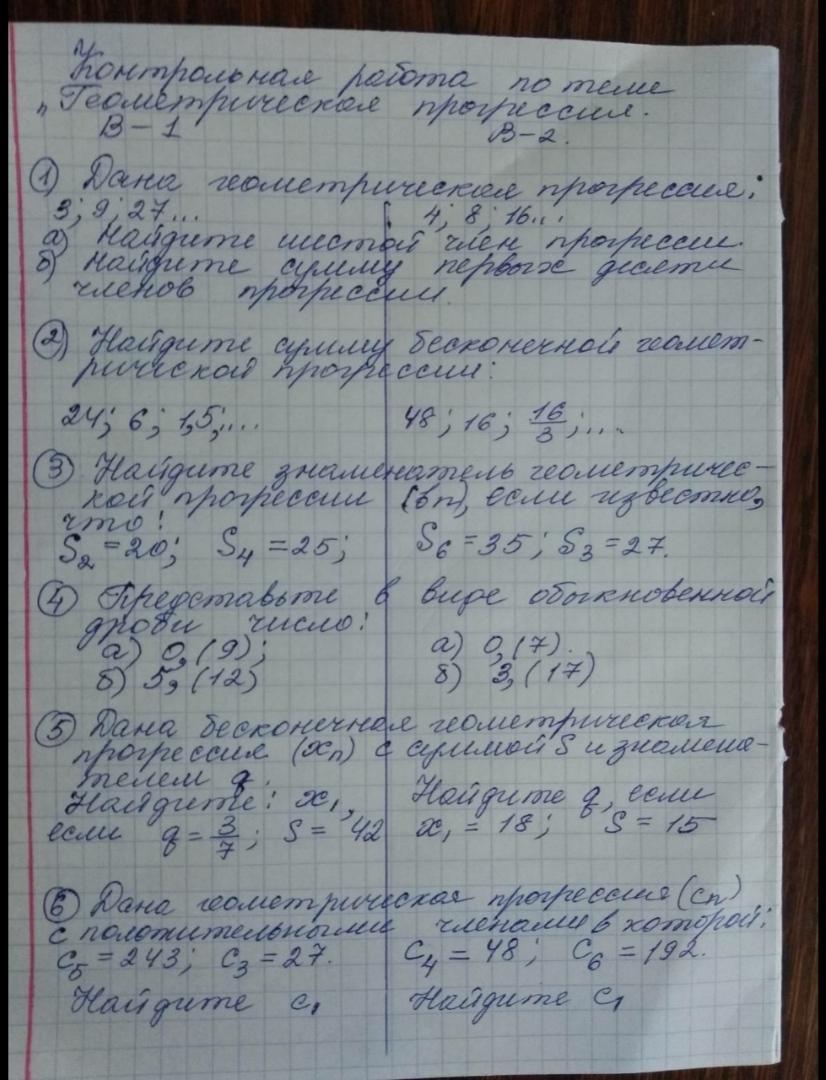 Контрольная работа по теме
„Геометрическая прогрессия.
В-1 В-2.
1) Дана геометрическая прогрессия:
3; 9; 27... 4; 8; 16...
а) Найдите шестой член прогрессии.
б) Найдите сумму первых десяти
членов прогрессии.
2) Найдите сумму бесконечной геомет-
рической прогрессии:
24; 6; 1,5;.... 48; 16; 16/3;...
3) Найдите знаменатель геометричес-
кой прогрессии (bn), если известно,
что:
S₂=20; S₄=25; S₆=35; S₃=27.
4) Представьте в виде обыкновенной
дроби число:
а) 0,(9); а) 0,(7).
б) 5,(12) б) 3,(17)
5) Дана бесконечная геометрическая
прогрессия (xn) с суммой S и знамена-
телем q.
Найдите: x₁, Найдите q, если
если q=3/7; S= 42 x₁=18; S=15
6) Дана геометрическая прогрессия (cn)
с положительными членами в которой:
c₅=243; c₃=27. c₄=48; c₆=192.
Найдите c₁ Найдите c₁